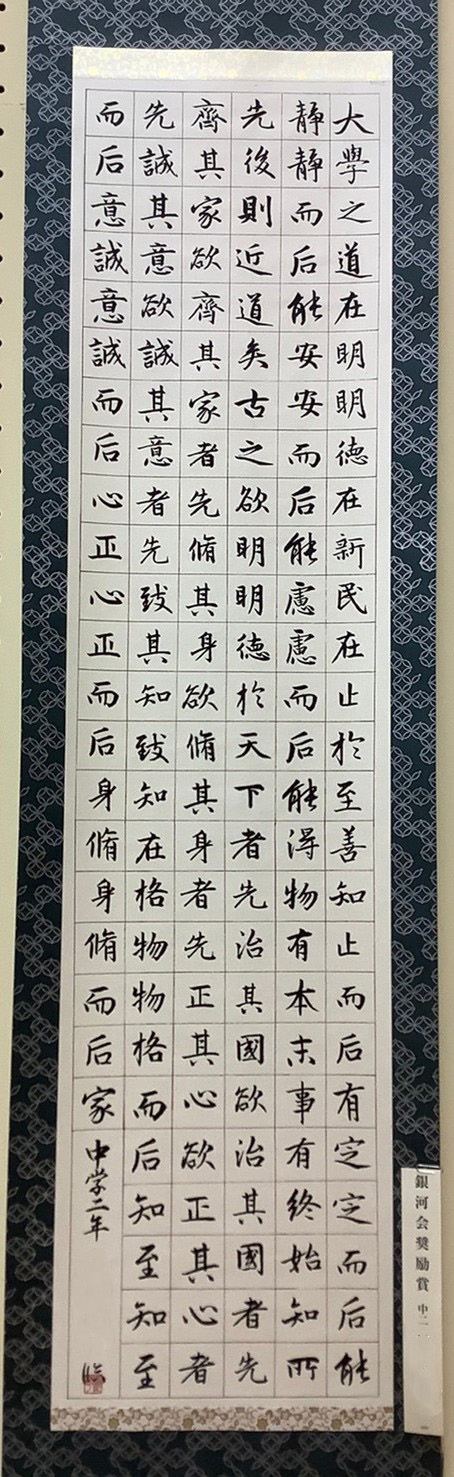 大學之道在明明徳在新民在止於至善知止而后有定定而后能
静静而后能安安而后能慮慮而后能得物有本末事有終始知所
先後則近道矣古之欲明明徳於天下者先治其國欲治其國者先
齊其家欲齊其家者先脩其身欲脩其身者先正其心欲正其心者
先誠其意欲誠其意者先致其知致知在格物物格而后知至知至
而后意誠意誠而后心正心正而后身脩身脩而后家
中学二年 臨
銀河会奨励賞 中二